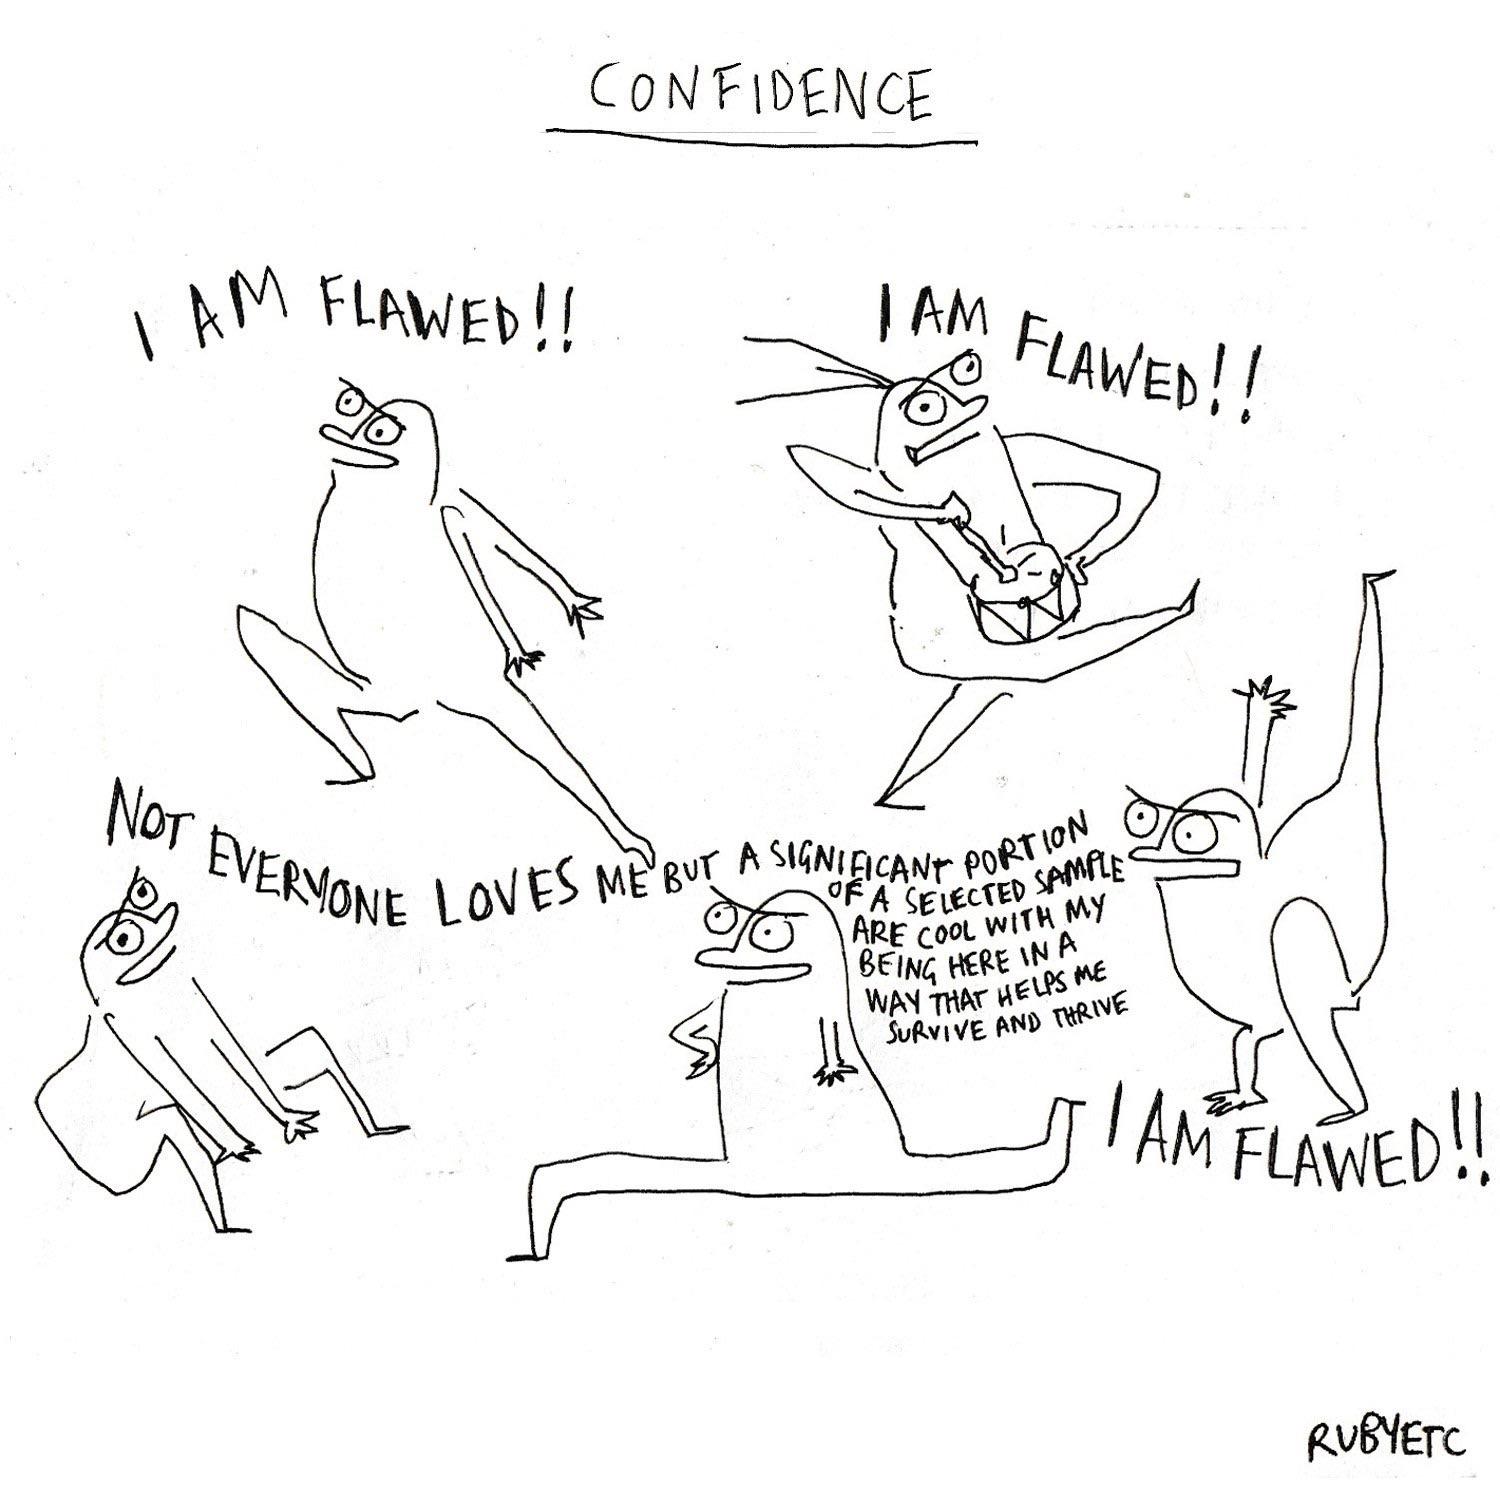 CONFIDENCE
I AM FLAWED!!
I AM FLAWED!!
NOT EVERYONE LOVES ME BUT A SIGNIFICANT PORTION
OF A SELECTED SAMPLE
ARE COOL WITH MY
BEING HERE IN A
WAY THAT HELPS ME
SURVIVE AND THRIVE
I AM FLAWED!!
RUBYETC